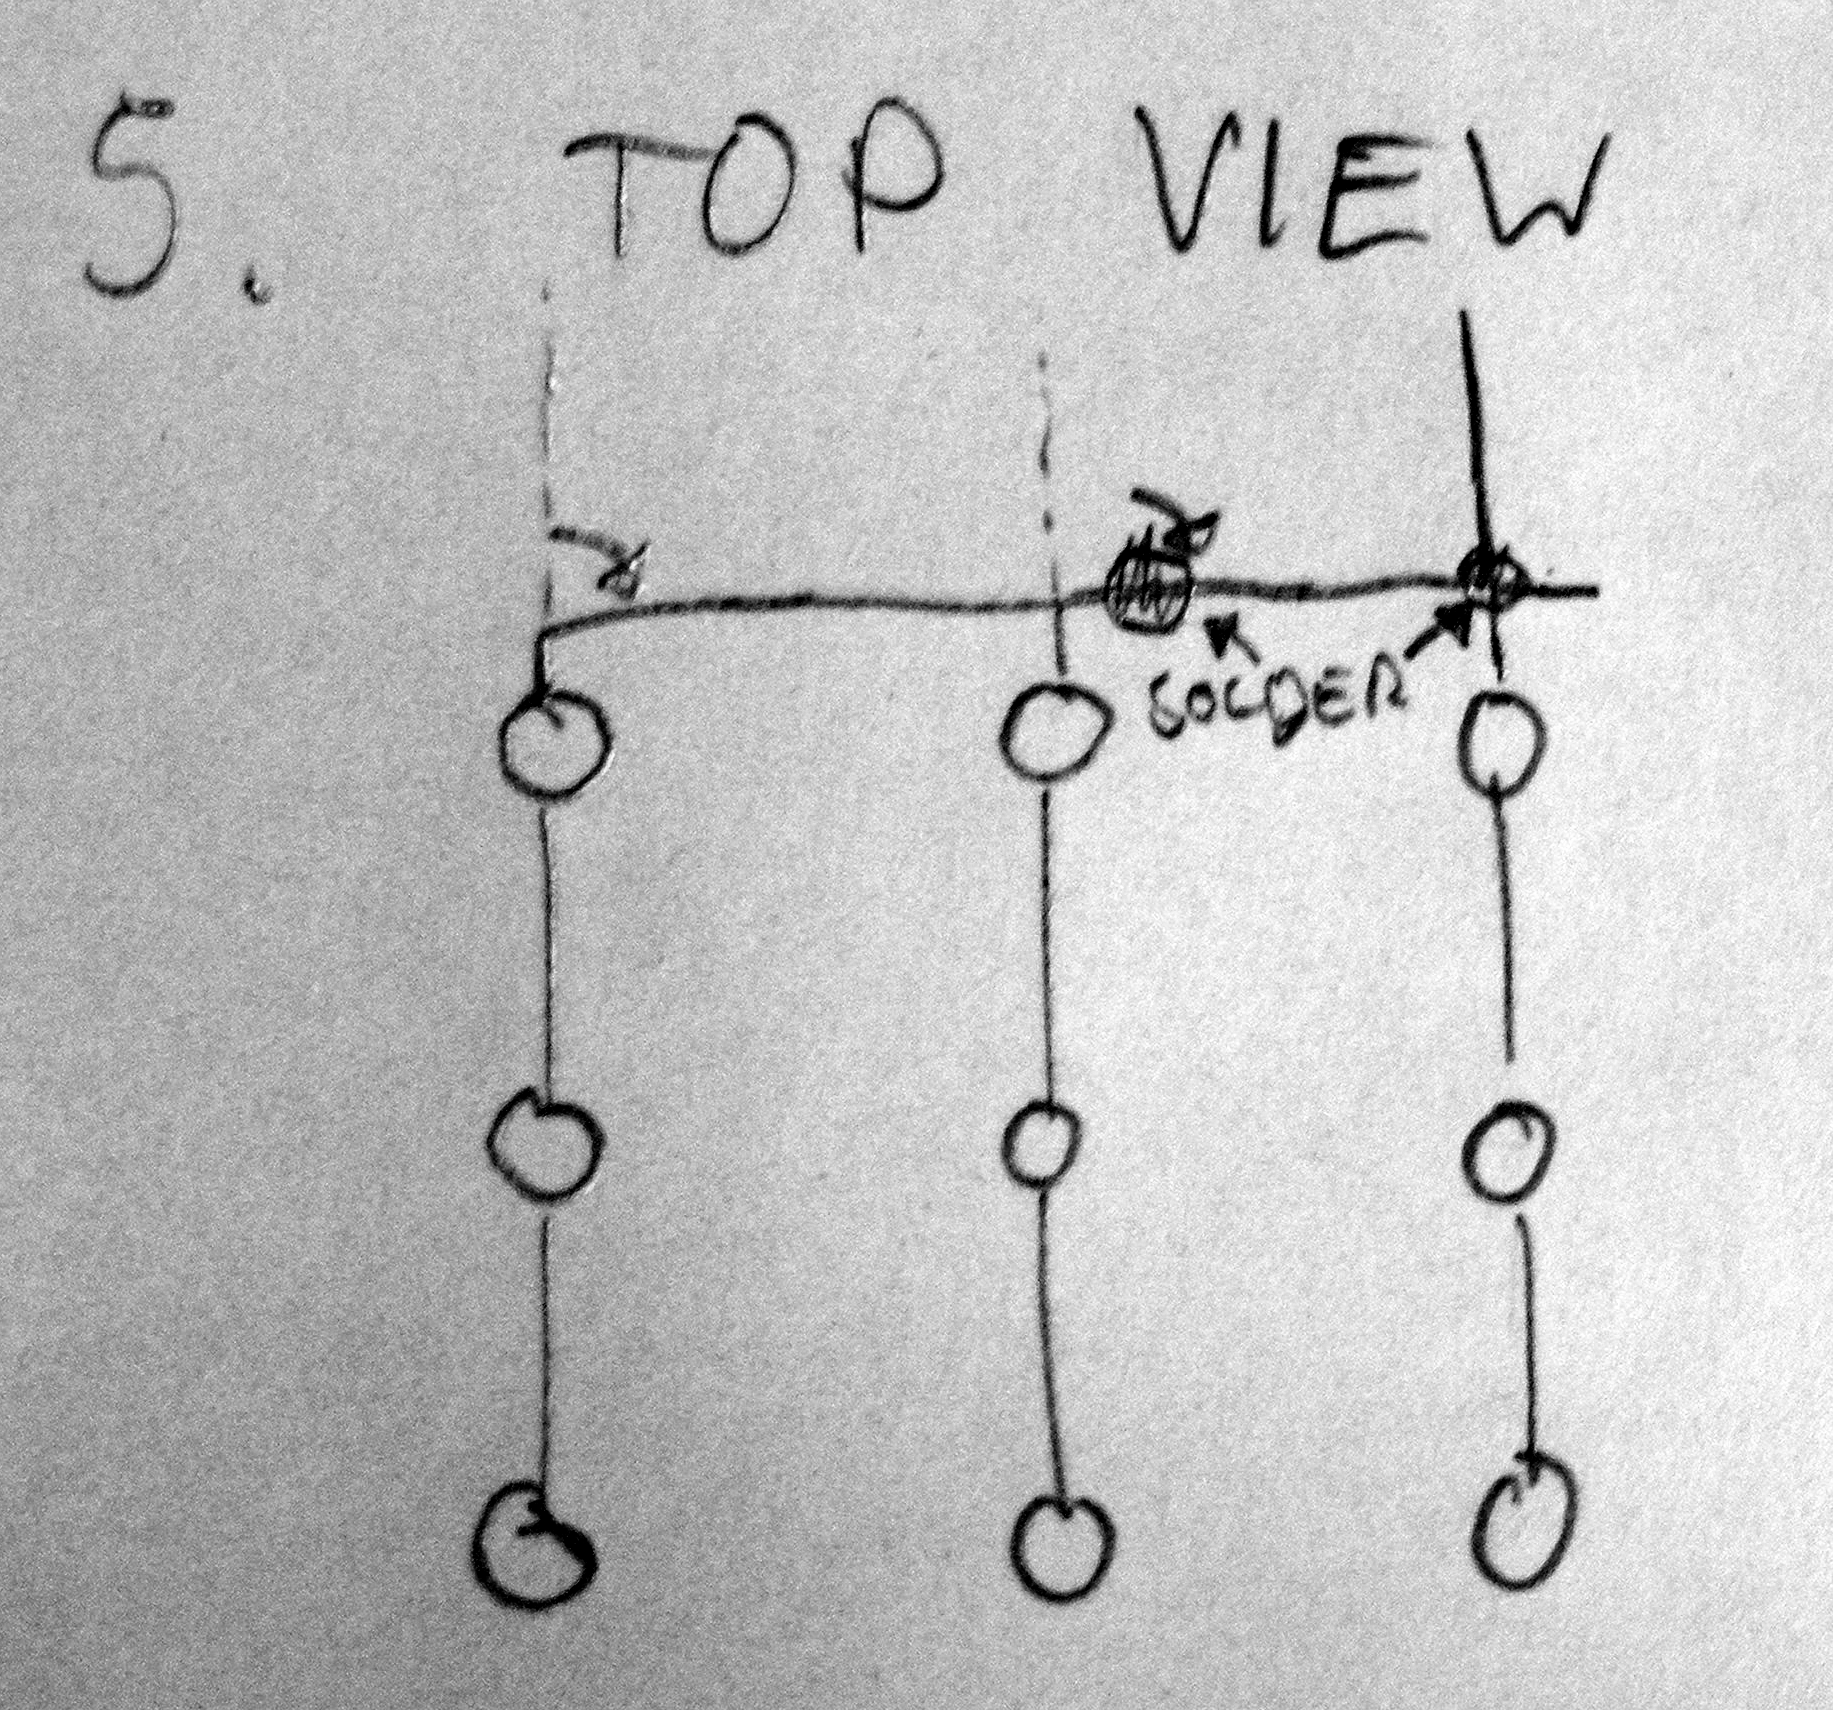 5. TOP VIEW
SOLDER